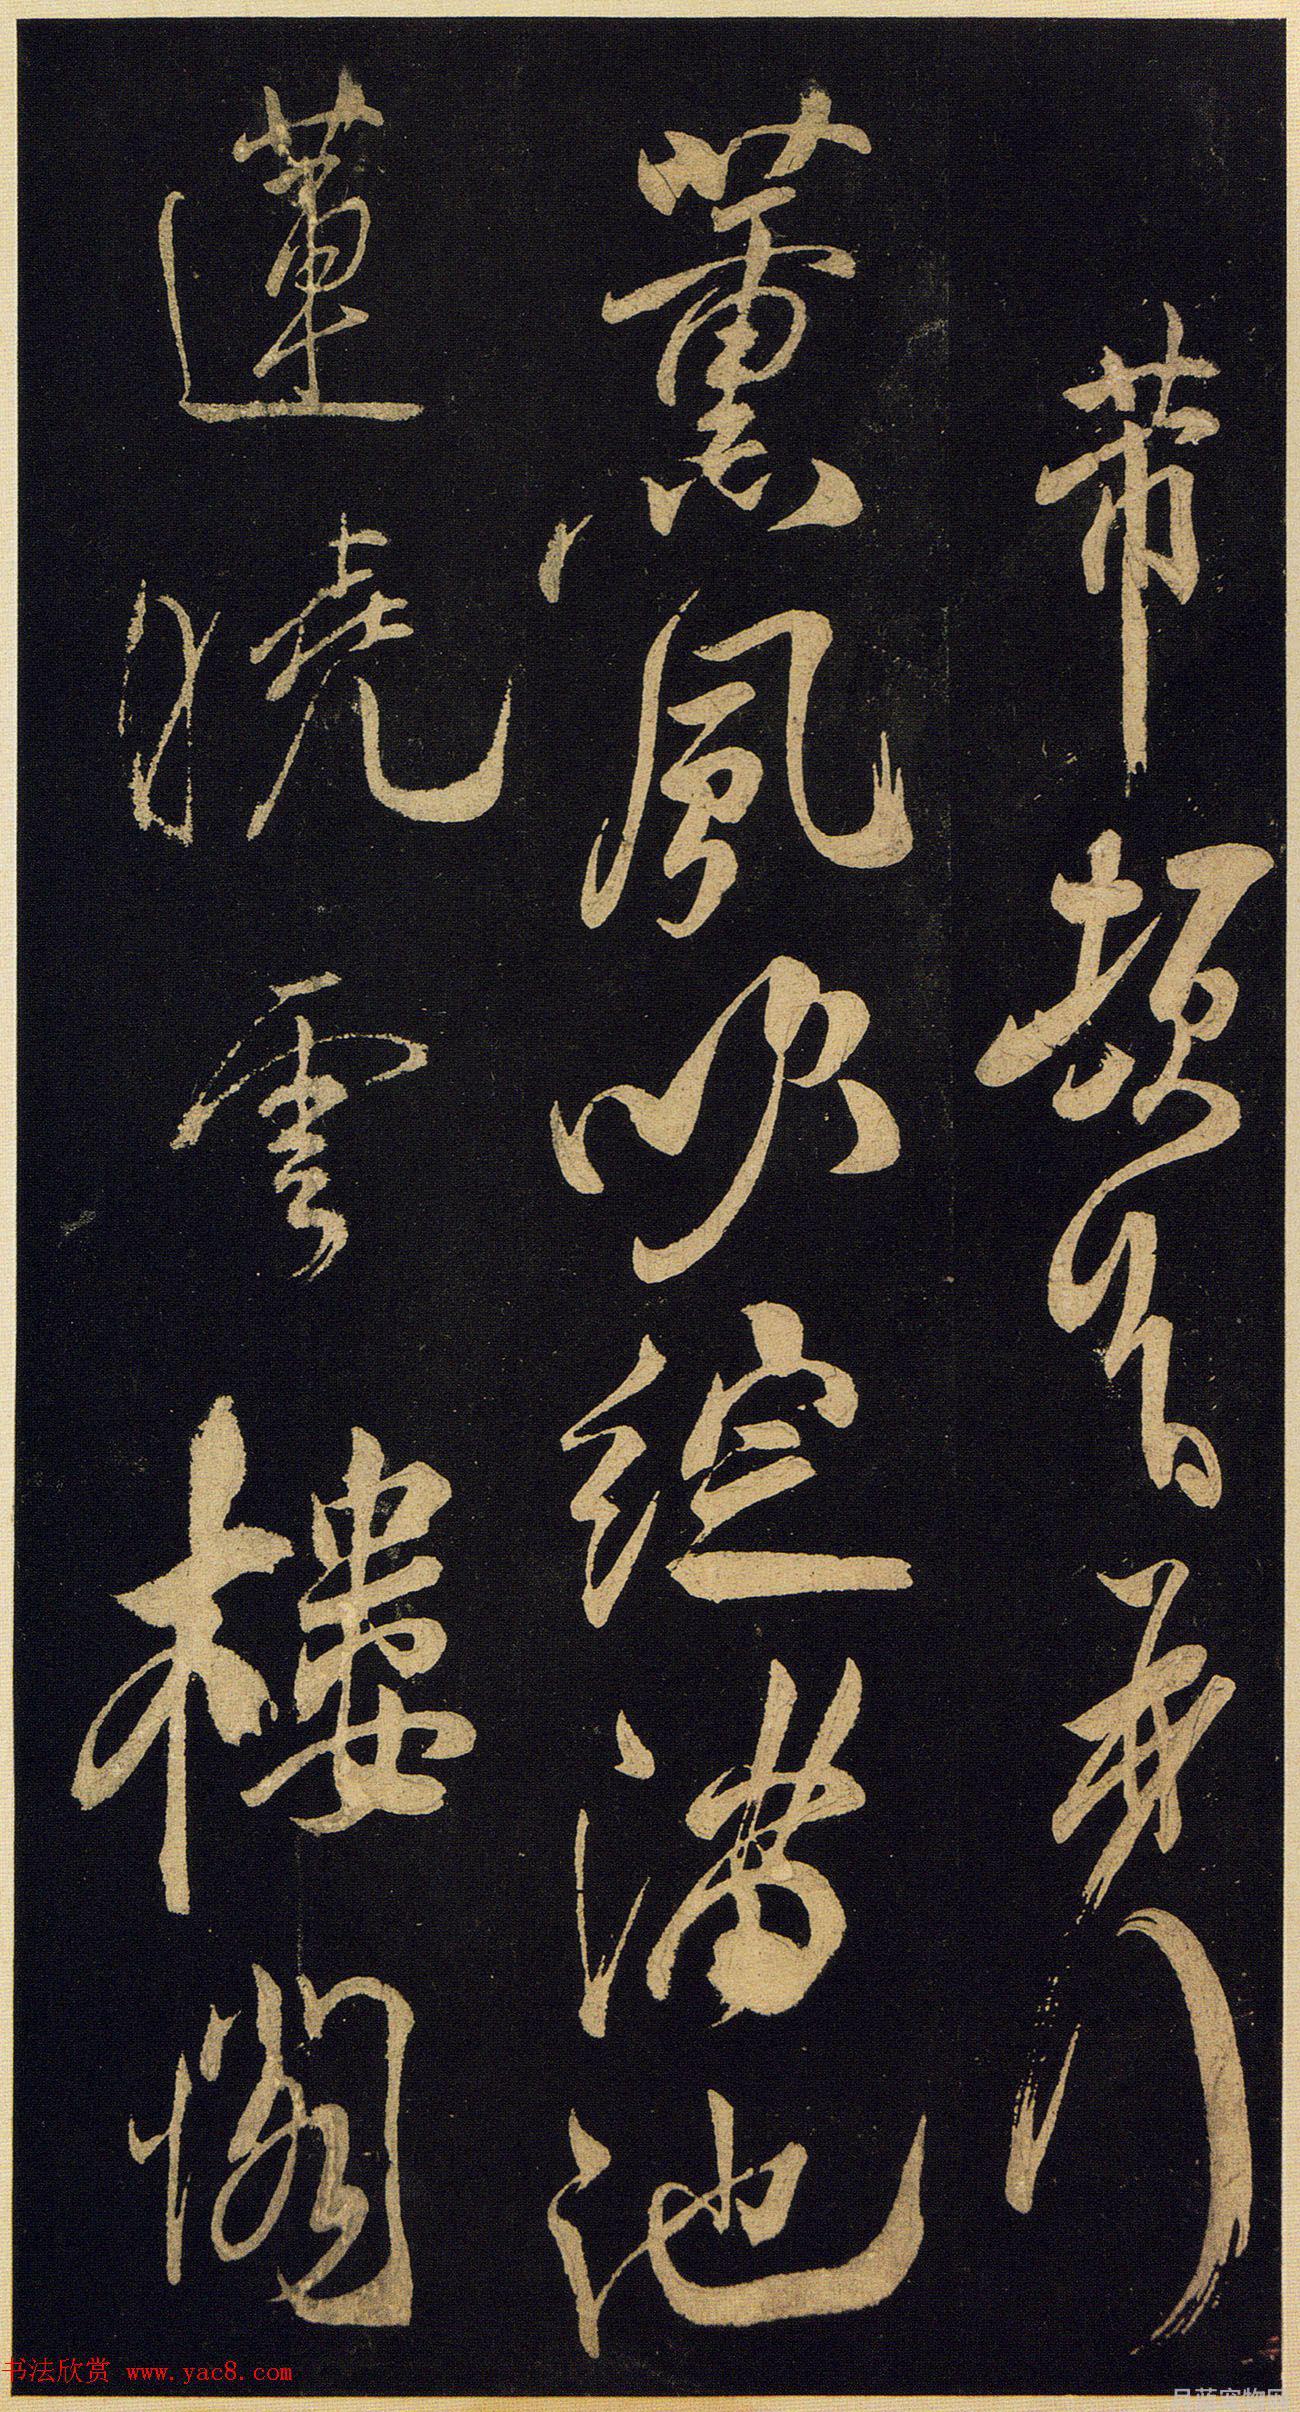 芾頓首再拜
薰風吹綻滿池
蓮曉雲樓閣
书法欣赏 www.yac8.com